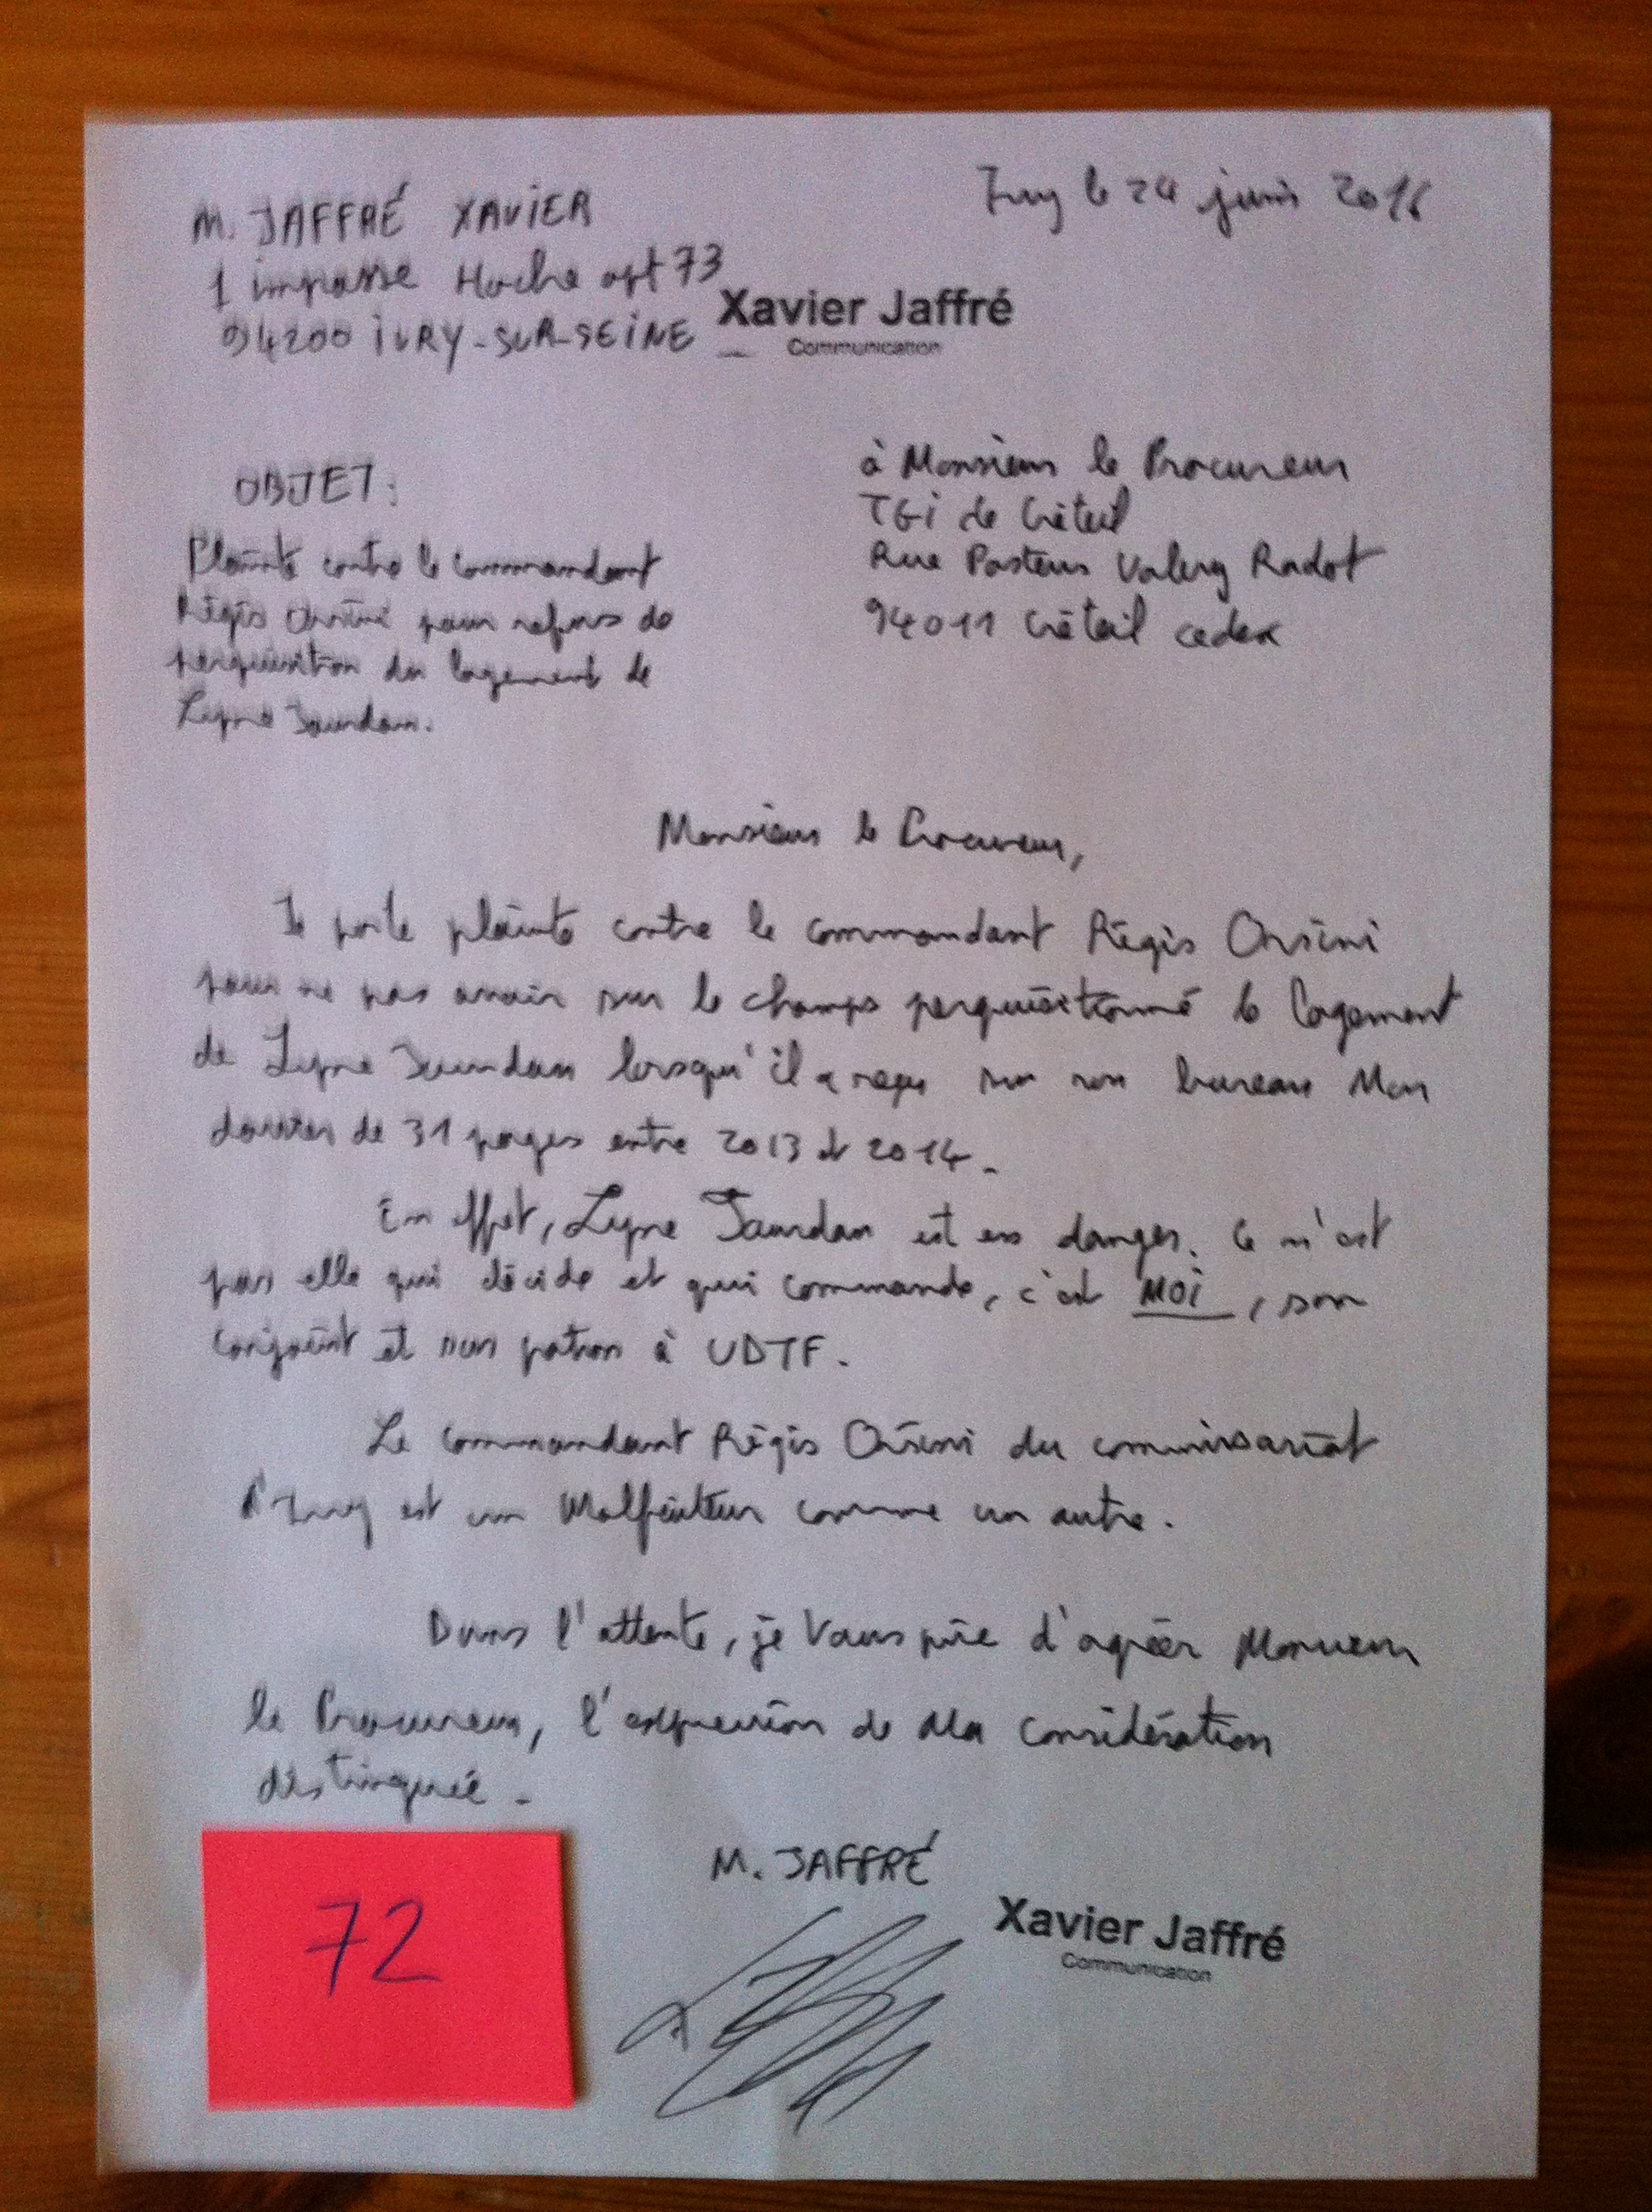 M. JAFFRÉ XAVIER
Ivry le 24 juin 2016
1 impasse Hoche apt 73
94200 IVRY-SUR-SEINE
Xavier Jaffré
Communication
à Monsieur le Procureur
TGI de Créteil
Rue Pasteur Valery Radot
94011 Créteil cedex
OBJET :
Plainte contre le commandant
Régis Orsini pour refus de
perquisition du logement de
Lyne Jourdan.
Monsieur le Procureur,
Je porte plainte contre le commandant Régis Orsini
pour ne pas avoir sur le champs perquisitionné le logement
de Lyne Jourdan lorsqu'il a reçu sur son bureau Mon
dossier de 31 pages entre 2013 et 2014.
En effet, Lyne Jourdan est en danger. Ce n'est
pas elle qui décide et qui commande, c'est MOI, son
conjoint et son patron à UDTF.
Le commandant Régis Orsini du commissariat
d'Ivry est un Malfaiteur comme un autre.
Dans l'attente, je Vous prie d'agréer Monsieur
le Procureur, l'expression de Ma considération
distinguée.
M. JAFFRÉ
Xavier Jaffré
Communication
72